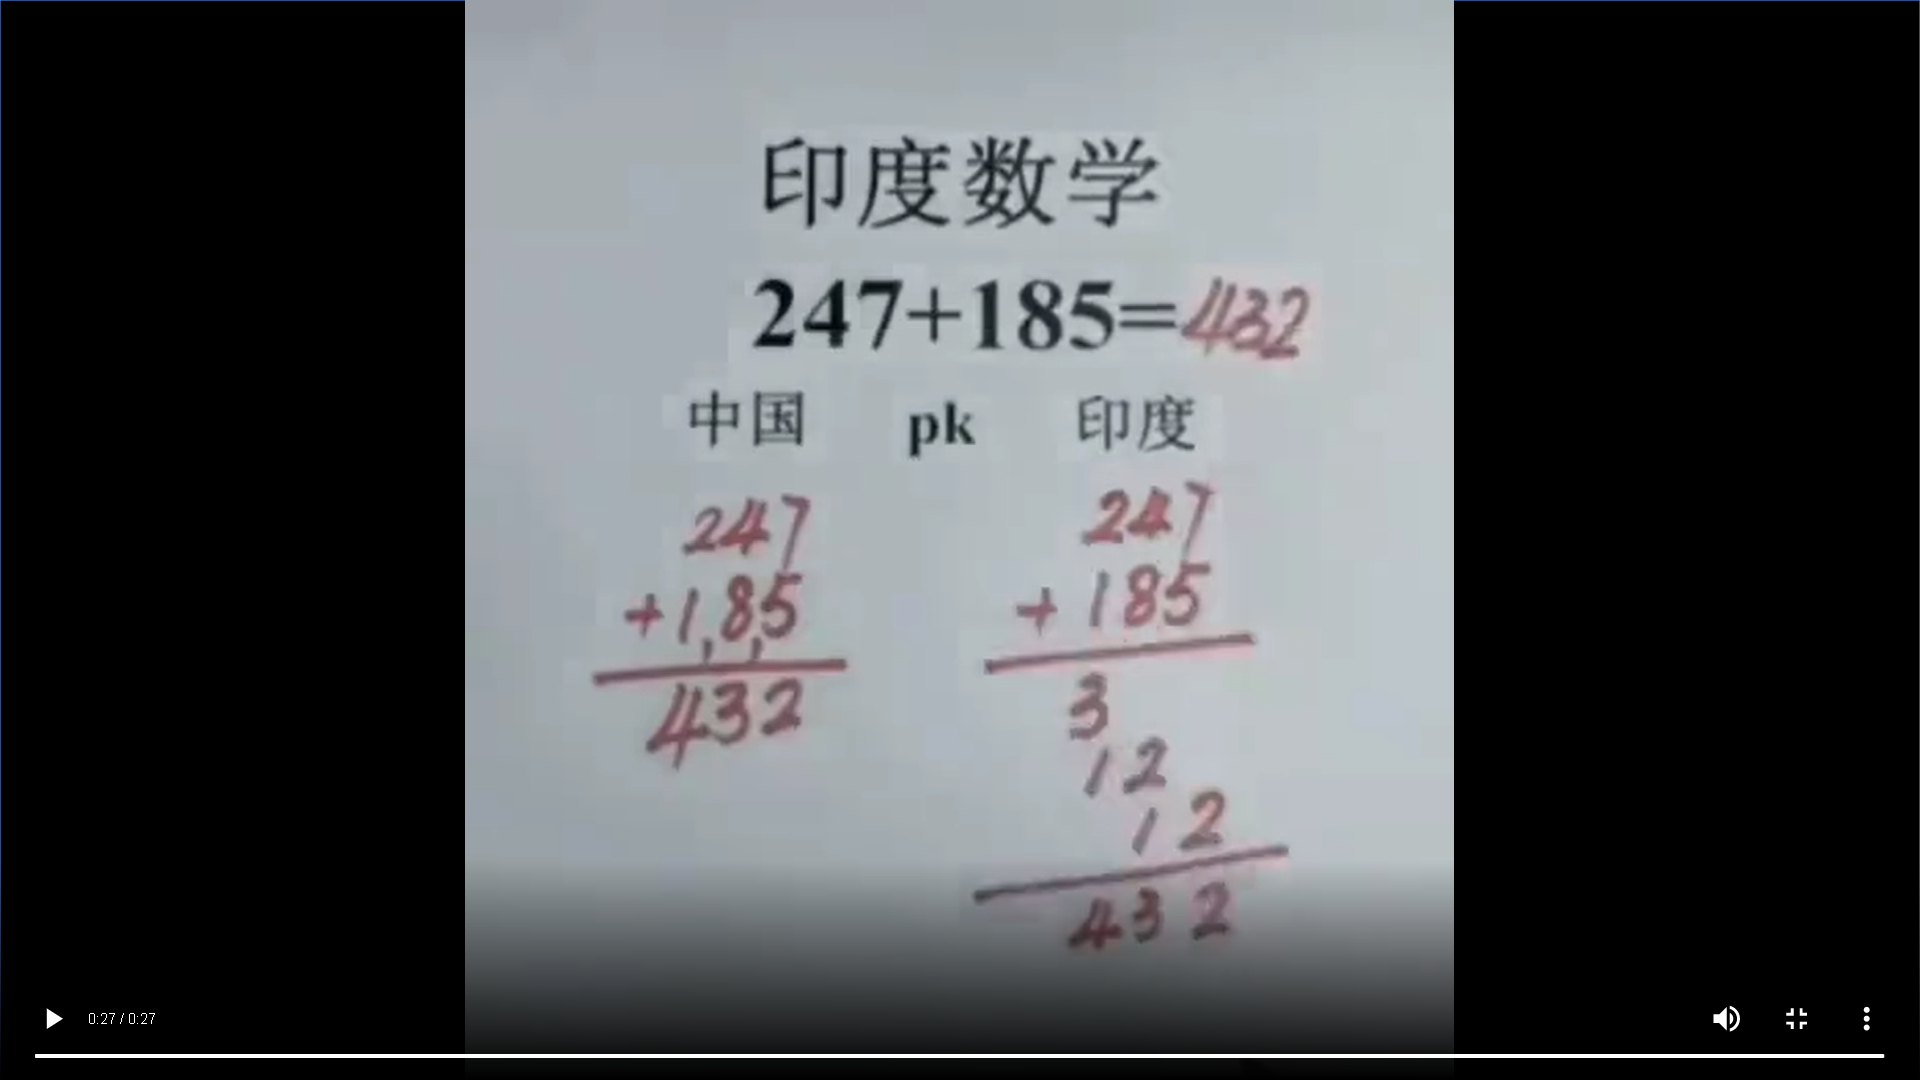 印度数学
247+185=432
中国 pk 印度
247
+185
432
247
+ 185
3
12
12
432
0:27 / 0:27